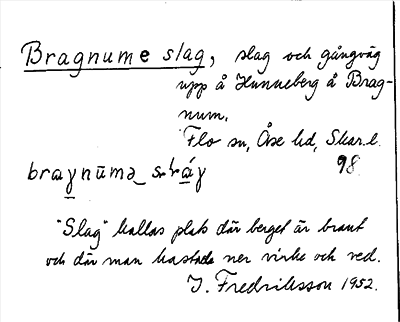 Bragnume slag, slag och gångväg
upp å Hunneberg å Brag-
num.
Flo sn, Åse hd, Skar. l.
98.
braɣnūmə_ sláɣ
"Slag" kallas plats där berget är brant
och där man kastade ner virke och ved.
J. Fredriksson 1952.